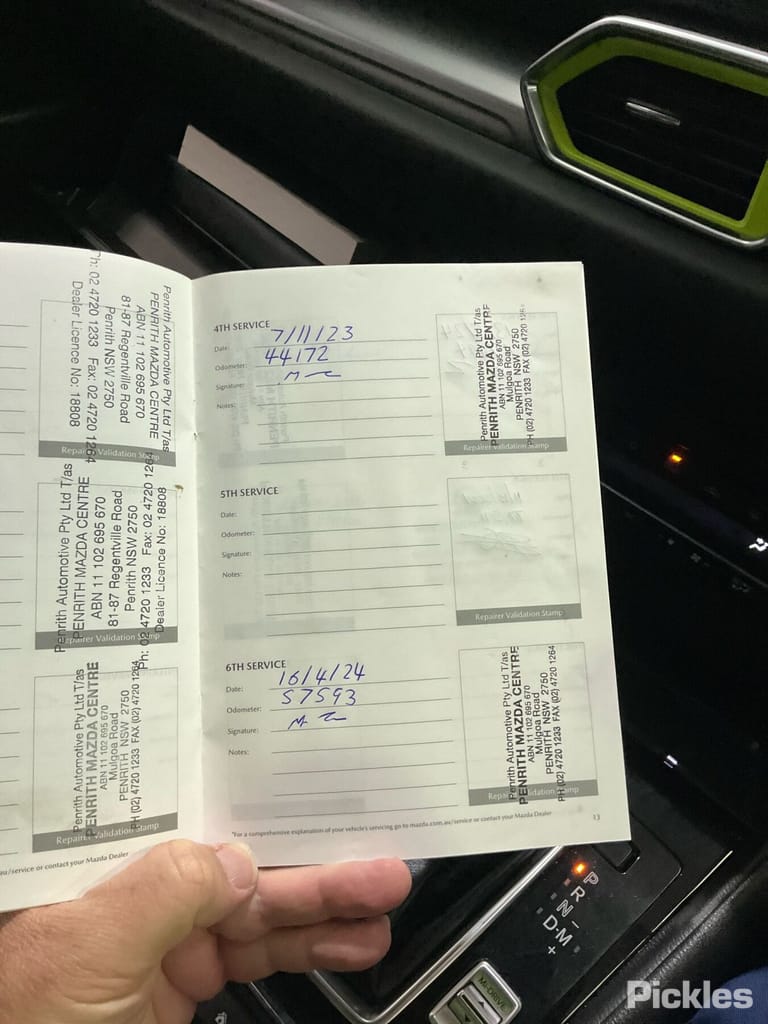 Penrith Automotive Pty Ltd T/as
PENRITH MAZDA CENTRE
ABN 11 102 695 670
81-87 Regentville Road
Penrith NSW 2750
Ph: 02 4720 1233 Fax: 02 4720 1264
Dealer Licence No: 18808
Repairer Validation Stamp
Penrith Automotive Pty Ltd T/as
PENRITH MAZDA CENTRE
ABN 11 102 695 670
81-87 Regentville Road
Penrith NSW 2750
Ph: 02 4720 1233 Fax: 02 4720 1264
Dealer Licence No: 18808
Repairer Validation Stamp
Penrith Automotive Pty Ltd T/as
PENRITH MAZDA CENTRE
ABN 11 102 695 670
Mulgoa Road
PENRITH NSW 2750
PH (02) 4720 1233 FAX (02) 4720 1264
Repairer Validation Stamp
au/service or contact your Mazda Dealer
4TH SERVICE
Date: 7/11/23
Odometer: 44172
Signature:
Notes:
Penrith Automotive Pty Ltd T/as
PENRITH MAZDA CENTRE
ABN 11 102 695 670
Mulgoa Road
PENRITH NSW 2750
PH (02) 4720 1233 FAX (02) 4720 1264
Repairer Validation Stamp
5TH SERVICE
Date:
Odometer:
Signature:
Notes:
Repairer Validation Stamp
6TH SERVICE
Date: 16/4/24
Odometer: 57593
Signature:
Notes:
Penrith Automotive Pty Ltd T/as
PENRITH MAZDA CENTRE
ABN 11 102 695 670
Mulgoa Road
PENRITH NSW 2750
PH (02) 4720 1233 FAX (02) 4720 1264
Repairer Validation Stamp
*For a comprehensive explanation of your vehicle's servicing go to mazda.com.au/service or contact your Mazda Dealer
13
P
R
N
D-M
+
-
M-DRIVE
Pickles